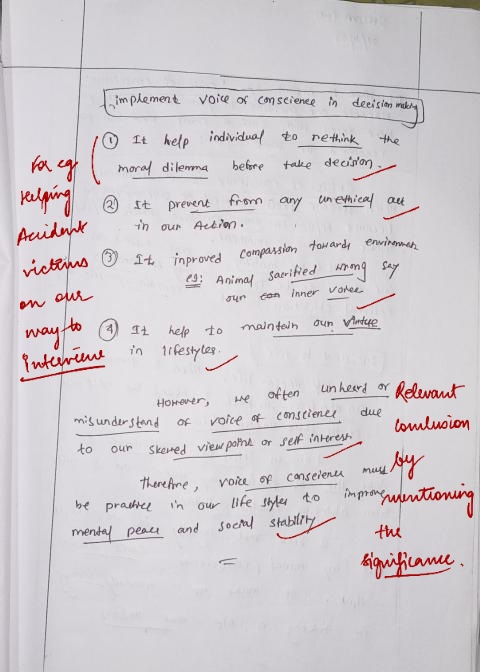 implement voice of conscience in decision making
① It help individual to rethink the
moral dilemma before take decision.
② It prevent from any unethical act
in our Action.
③ Its inproved compassion towards environment
eg: Animal sacrified wrong say
our inner voice
④ It help to maintain our virtue
in lifestyles.
However, we often unheard or
misunderstand of voice of conscience due
to our skewed viewpoint or self interest.
Therefore, voice of conscience must
be practice in our life styles to improve
mental peace and social stability
For eg
Helping
Accident
victims
on our
way to
Interview
Relevant
conclusion
by
mentioning
the
significance.